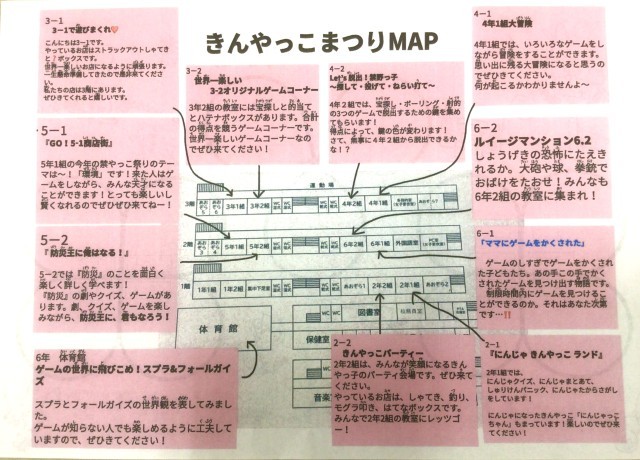 きんやっこまつりMAP
3－1
3－1で遊びまくれ
こんにちは3－1です。
やっているお店はストラックアウトしゃてき
と?ボックスです。
世界一楽しいお店になるように頑張ります。
一生懸命準備してきたので是非来てくださ
い。
私たちの店は3階にあります。
ぜひきてくれると嬉しいです。
3－2
世界一楽しい
3-2オリジナルゲームコーナー
3年2組の教室には宝探しと的当て
とハテナボックスがあります。合計
の得点を競うゲームコーナーです。
世界一楽しいゲームコーナーなの
でぜひ来てください!
4－2
Let's 脱出!禁野っ子
～探して・投げて・ねらい打て～
4年2組では、宝探し・ボーリング・射的
の3つのゲームで脱出するための鍵を集め
てもらいます!
得点によって、鍵の色が変わります!
さて、無事に4年2組から脱出できるか
な!?
4－1
4年1組大冒険
4年1組では、いろいろなゲームをし
ながら冒険をすることができます。
思い出に残る大冒険になると思うの
でぜひきてください。
何が起こるかわかりませんよ～
5－1
『GO!5-1商店街』
5年1組の今年の禁やっこ祭りのテー
マは～!「環境」です!来た人はゲ
ームをしながら、みんな天才になる
ことができます!とっても楽しいし
賢くなれるのでぜひぜひ来てねー!
6－2
ルイージマンション6.2
しょうげきの恐怖にたえき
れるか。大砲や球、拳銃で
おばけをたおせ!みんなも
6年2組の教室に集まれ!
5－2
『防災王に俺はなる!』
5－2では『防災』のことを面白く
楽しく詳しく学べます!
『防災』の劇やクイズ、ゲームがあ
ります。劇、クイズ、ゲームを楽し
みながら、防災王に、君もなろう!
6－1
「ママにゲームをかくされた」
ゲームのしすぎでゲームをかくされ
た子どもたち。あの手この手でかく
されたゲームを見つけ出す物語です。
制限時間内にゲームを見つけるこ
とができるのか。それはあなた次第
です…!!
運動場
3階
3年1組
3年2組
4年2組
4年1組
2階
5年1組
5年2組
6年2組
6年1組
外国語室
1階
1年1組
1年2組
2年2組
2年1組
体育館
図書室
保健室
6年 体育館
ゲームの世界に飛びこめ!スプラ&フォールガイ
ズ
スプラとフォールガイズの世界観を表してみまし
た。
ゲームが知らない人でも楽しめるように工夫して
いますので、ぜひきてください!
2－2
きんやっこパーティー
2年2組は、みんなが笑顔になるきん
やっ子のパーティ会場です。ぜひ来て
ください。
やっているお店は、しゃてき、釣り、
モグラ叩き、はてなボックスです。
みんなで2年2組の教室にレッツゴ
ー!
2－1
『にんじゃ きんやっこ ランド』
2年1組では、
にんじゃクイズ、にんじゃまとあて、
しゅりけんパニック、にんじゃたからさがし
をしています!
にんじゃになったきんやっこ「にんじゃっこ
ちゃん」もまっています!楽しいのでぜひ来
てください!